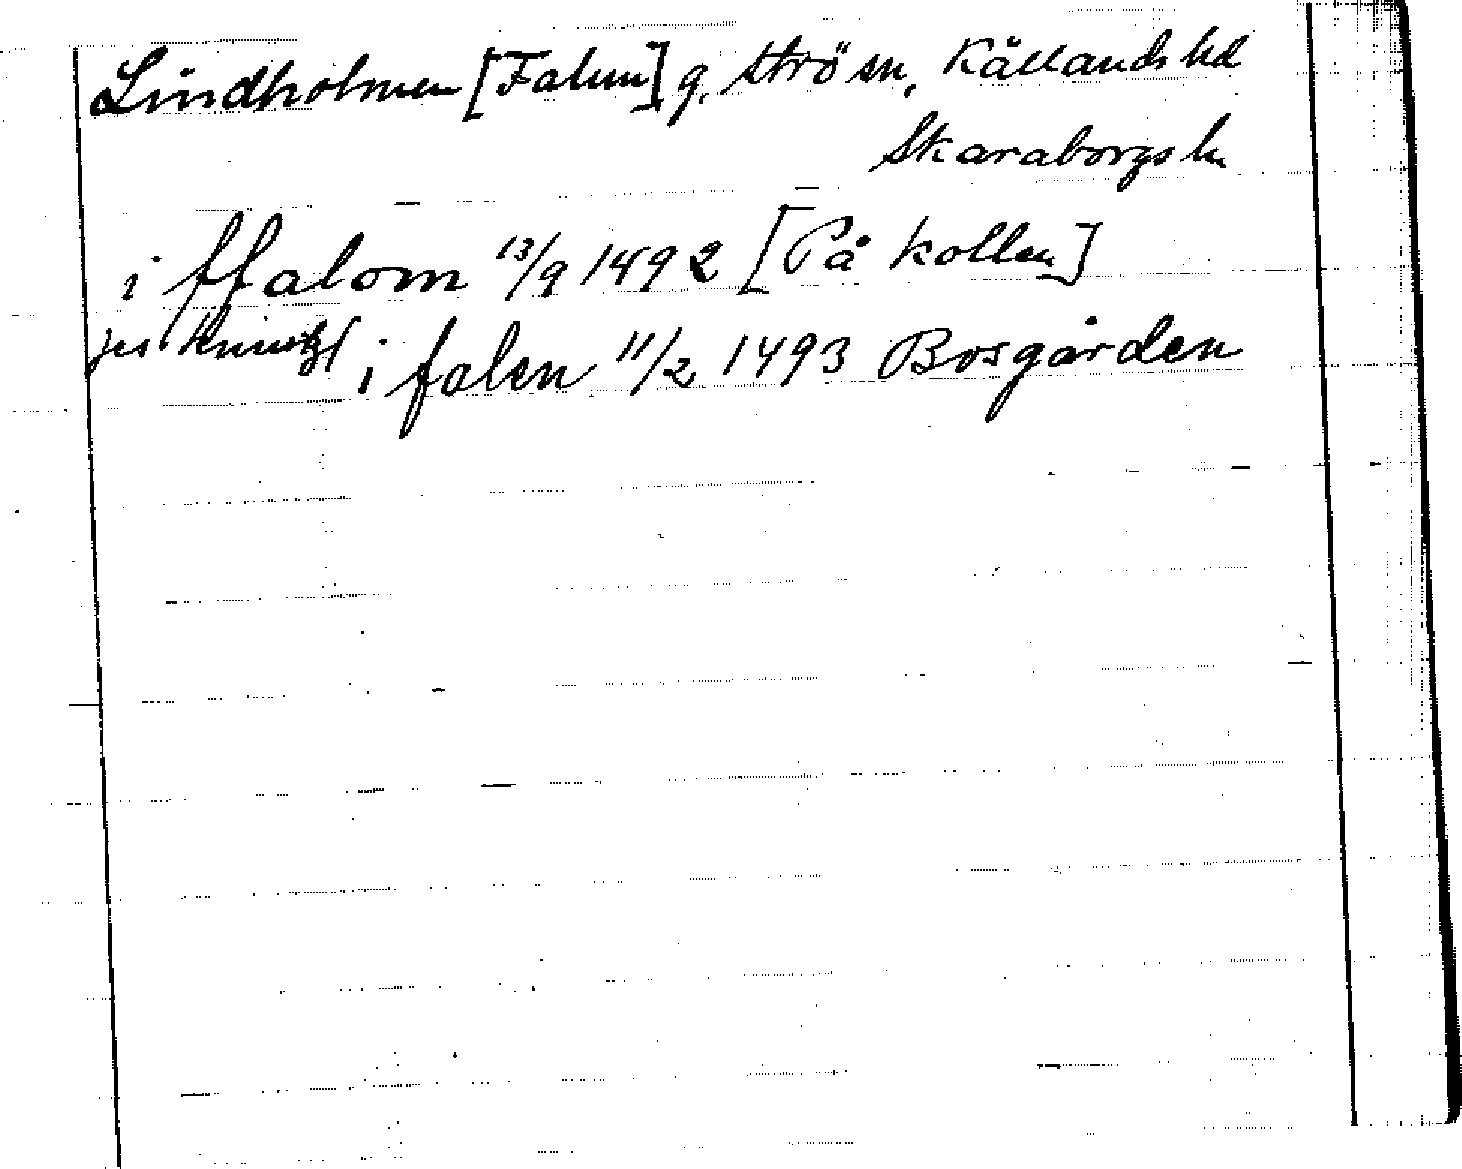 Lindholmen [Falun] g. Strö sn, Kållands hd
Skaraborgs ln
i ffalom 13/9 1492 [På kollen]
i falen 11/2 1493 Bosgården